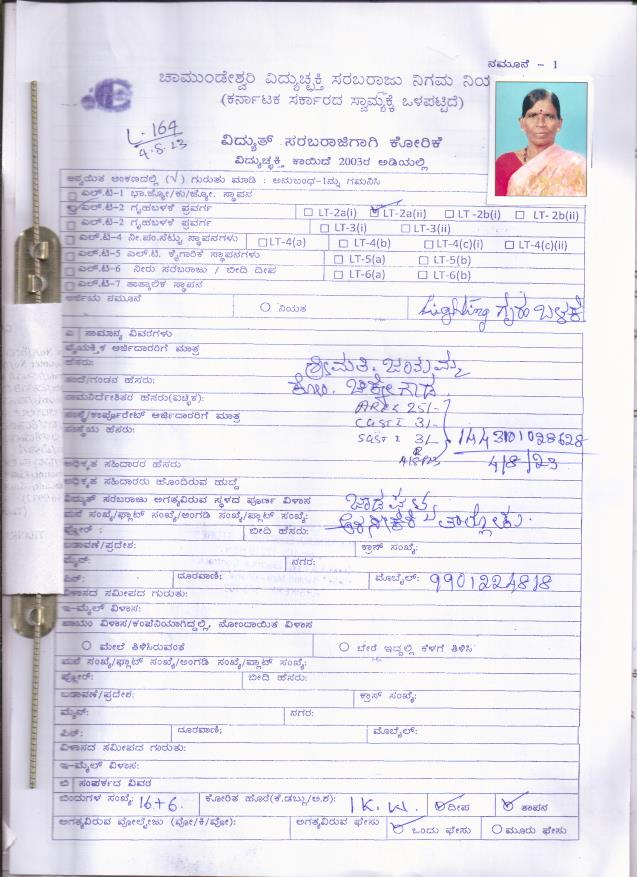 ನಮೂನೆ - 1
ಚಾಮುಂಡೇಶ್ವರಿ ವಿದ್ಯುಚ್ಛಕ್ತಿ ಸರಬರಾಜು ನಿಗಮ ನಿಯ
(ಕರ್ನಾಟಕ ಸರ್ಕಾರದ ಸ್ವಾಮ್ಯಕ್ಕೆ ಒಳಪಟ್ಟಿದೆ)
L. 164
4.8.23
ವಿದ್ಯುತ್ ಸರಬರಾಜಿಗಾಗಿ ಕೋರಿಕೆ
ವಿದ್ಯುಚ್ಛಕ್ತಿ ಕಾಯಿದೆ 2003ರ ಅಡಿಯಲ್ಲಿ
ಅನ್ವಯಿತ ಅಂಕಣದಲ್ಲಿ (√) ಗುರುತು ಮಾಡಿ : ಅನುಬಂಧ-1ನ್ನು ಗಮನಿಸಿ
ಎಲ್.ಟಿ-1 ಭಾ.ಜ್ಯೋ/ಕು/ಜ್ಯೋ. ಸ್ಥಾಪನ
ಎಲ್.ಟಿ-2 ಗೃಹಬಳಕೆ ಪ್ರವರ್ಗ LT-2a(i) LT-2a(ii) LT-2b(i) LT-2b(ii)
ಎಲ್.ಟಿ-2 ಗೃಹಬಳಕೆ ಪ್ರವರ್ಗ LT-3(i) LT-3(ii)
ಎಲ್.ಟಿ-4 ನೀ.ಪಂ.ಸೆಟ್ಟು ಸ್ಥಾಪನಗಳು LT-4(a) LT-4(b) LT-4(c)(i) LT-4(c)(ii)
ಎಲ್.ಟಿ-5 ಎಲ್.ಟಿ. ಕೈಗಾರಿಕೆ ಸ್ಥಾಪನಗಳು LT-5(a) LT-5(b)
ಎಲ್.ಟಿ-6 ನೀರು ಸರಬರಾಜು / ಬೀದಿ ದೀಪ LT-6(a) LT-6(b)
ಎಲ್.ಟಿ-7 ತಾತ್ಕಾಲಿಕ ಸ್ಥಾಪನ
ಅರ್ಜಿಯ ನಮೂನೆ ನಿಯತ Lighting ಗೃಹ ಬಳಕೆ
ಎ ಸಾಮಾನ್ಯ ವಿವರಗಳು
ವೈಯಕ್ತಿಕ ಅರ್ಜಿದಾರರಿಗೆ ಮಾತ್ರ
ಹೆಸರು: ಶ್ರೀಮತಿ. ಜಯಮ್ಮ
ತಂದೆ/ಗಂಡನ ಹೆಸರು: ಕೋಂ. ಚಿಕ್ಕೇಗೌಡ.
ನಾಮನಿರ್ದೇಶಿತರ ಹೆಸರು(ಐಚ್ಛಿಕ):
ಸಂಸ್ಥೆ/ಕಾರ್ಪೊರೇಟ್ ಅರ್ಜಿದಾರರಿಗೆ ಮಾತ್ರ 25/-
ಸಂಸ್ಥೆಯ ಹೆಸರು: CGST 3/-
SGST 3/- 1443101028628
ಅಧಿಕೃತ ಸಹಿದಾರರ ಹೆಸರು 4/8/23 4/8/23
ಅಧಿಕೃತ ಸಹಿದಾರರು ಹೊಂದಿರುವ ಹುದ್ದೆ
ವಿದ್ಯುತ್ ಸರಬರಾಜು ಅಗತ್ಯವಿರುವ ಸ್ಥಳದ ಪೂರ್ಣ ವಿಳಾಸ
ಮನೆ ಸಂಖ್ಯೆ/ಫ್ಲಾಟ್ ಸಂಖ್ಯೆ/ಅಂಗಡಿ ಸಂಖ್ಯೆ/ಪ್ಲಾಟ್ ಸಂಖ್ಯೆ:
ಫ್ಲೋರ್ : ಬೀದಿ ಹೆಸರು: ತಾಲ್ಲೋಕು.
ಬಡಾವಣೆ/ಪ್ರದೇಶ: ಕ್ರಾಸ್ ಸಂಖ್ಯೆ:
ಮೈನ್: ನಗರ:
ಪಿನ್: ದೂರವಾಣಿ: ಮೊಬೈಲ್: 9901224818
ವಿಳಾಸದ ಸಮೀಪದ ಗುರುತು:
ಇ-ಮೈಲ್ ವಿಳಾಸ:
ಖಾಯಂ ವಿಳಾಸ/ಕಂಪೆನಿಯಾಗಿದ್ದಲ್ಲಿ, ನೋಂದಾಯಿತ ವಿಳಾಸ
ಮೇಲೆ ತಿಳಿಸಿರುವಂತೆ ಬೇರೆ ಇದ್ದಲ್ಲಿ ಕೆಳಗೆ ತಿಳಿಸಿ
ಮನೆ ಸಂಖ್ಯೆ/ಫ್ಲಾಟ್ ಸಂಖ್ಯೆ/ಅಂಗಡಿ ಸಂಖ್ಯೆ/ಪ್ಲಾಟ್ ಸಂಖ್ಯೆ:
ಫ್ಲೋರ್: ಬೀದಿ ಹೆಸರು:
ಬಡಾವಣೆ/ಪ್ರದೇಶ: ಕ್ರಾಸ್ ಸಂಖ್ಯೆ:
ಮೈನ್: ನಗರ:
ಪಿನ್: ದೂರವಾಣಿ: ಮೊಬೈಲ್:
ವಿಳಾಸದ ಸಮೀಪದ ಗುರುತು:
ಇ-ಮೈಲ್ ವಿಳಾಸ:
ಬಿ ಸಂಪರ್ಕದ ವಿವರ
ಬಿಂದುಗಳ ಸಂಖ್ಯೆ: 16+6. ಕೋರಿತ ಹೊರೆ(ಕೆ.ಡಬ್ಲು/ಅ.ಶ): 1 K.W. ದೀಪ ತಾಪನ
ಅಗತ್ಯವಿರುವ ವೋಲ್ಟೇಜು (ವೋ/ಕಿ/ವೋ): ಅಗತ್ಯವಿರುವ ಫೇಸು ಒಂದು ಫೇಸು ಮೂರು ಫೇಸು